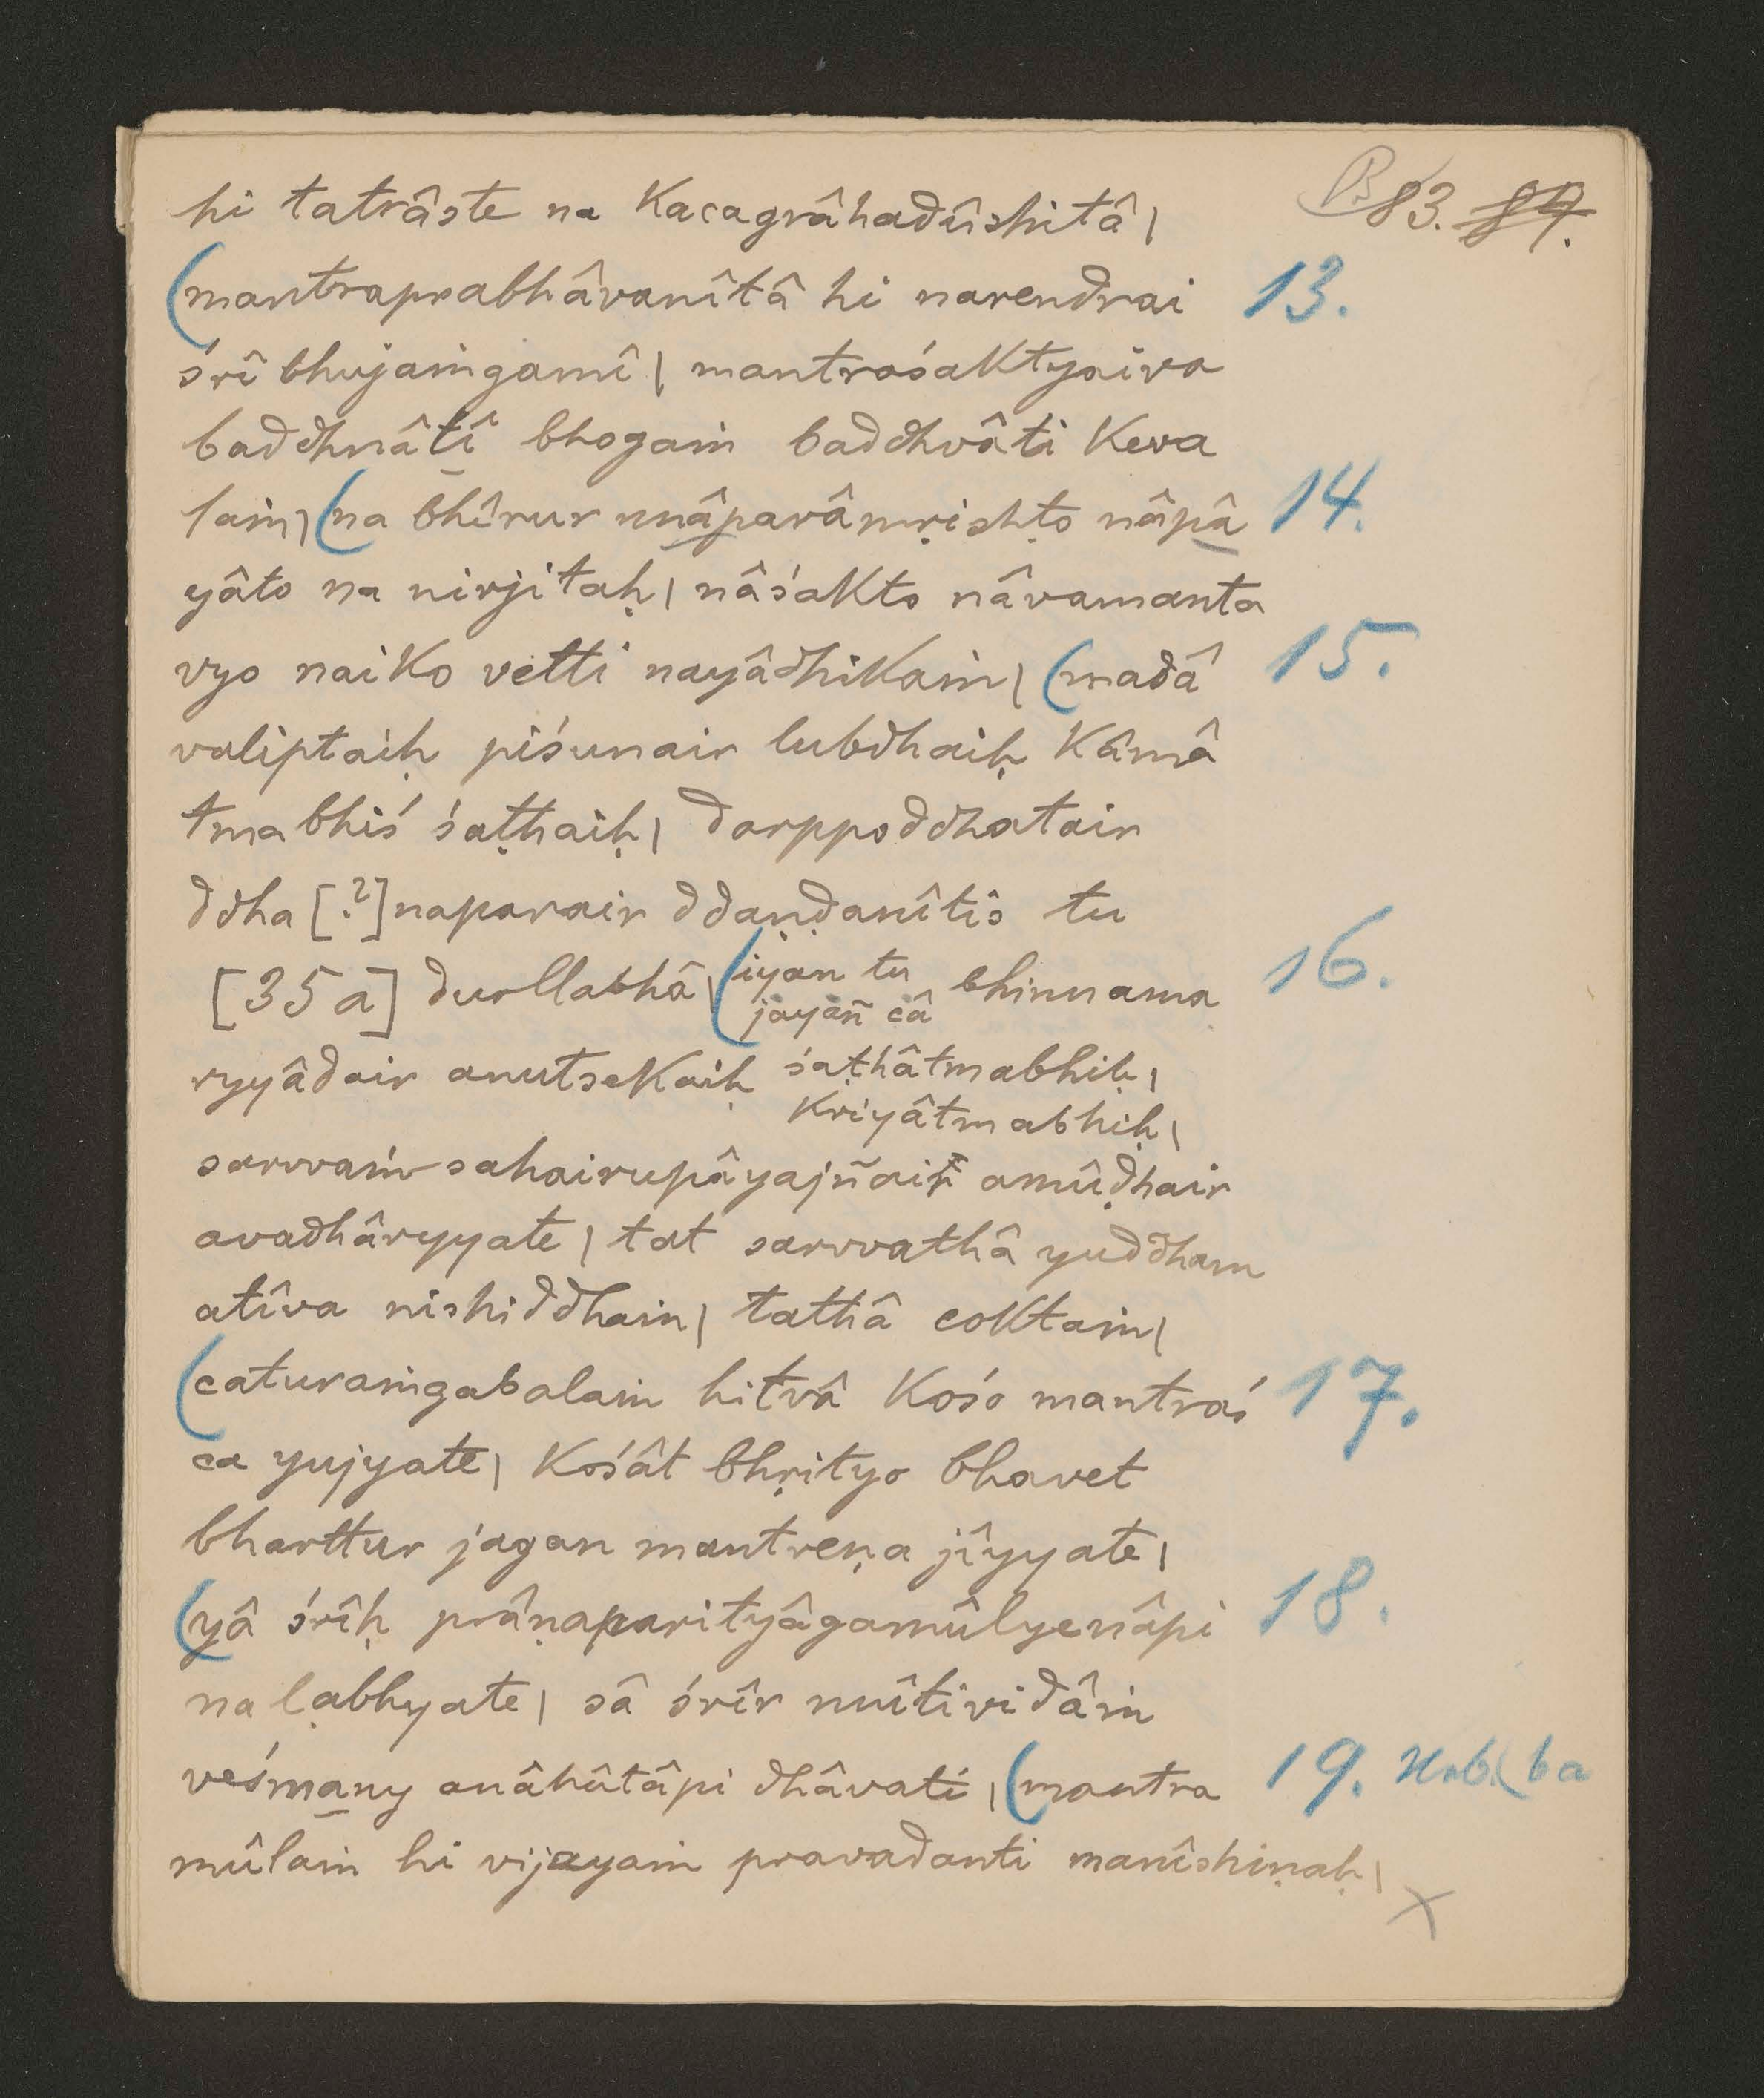 83. 84.
hi tatrâste na kacagrâhadûshitâ |
(mantraprabhâvanîtâ hi narendrai 13.
śrî bhujaṁgamî | mantraśaktyaiva
baddhnâtî bhogaṁ baddhvâti keva
laṁ | (na bhîrur nnâparâmṛishṭo nâpâ 14.
yâto na nirjitaḥ | nâśakto nâvamanta
vyo naiko vetti nayâdhikaṁ | (madâ 15.
valiptaiḥ piśunair lubdhaiḥ kâmâ
tmabhiś śaṭhaiḥ | darppoddhatair
ddha [?] naparair ddaṇḍanîtis tu
[35a] durllabhâ | (iyan tu bhinnama 16.
jayañ câ
ryyâdair anutsekaiḥ śaṭhâtmabhiḥ |
kriyâtmabhiḥ |
sarvvaṁ sahairupâyajñair amûḍhair
avadhâryyate | tat sarvvathâ yuddham
atîva nishiddhaṁ | tathâ coktaṁ |
(caturaṁgabalaṁ hitvâ kośo mantraś 17.
ca yujyate | kośât bhṛityo bhavet
bharttur jagan mantreṇa jîyyate |
(yâ śrîḥ prâṇaparityâgamûlyenâpi 18.
na ḷabhyate | sâ śrîr nnîtividâṁ
veśmany anâhûtâpi dhâvati | (mantra 19. Hrb. ( ba
mûlaṁ hi vijayaṁ pravadanti manîshiṇaḥ | x